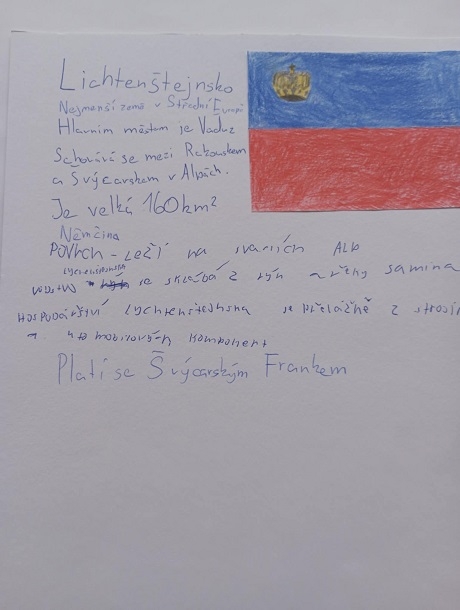 Lichtenštejnsko
Nejmenší země v Střední Evropě
Hlavním městem je Vaduz
Schovává se mezi Rakouskem
a Švýcarskem v Alpách.
Je velká 160km²
Němčina
POVRCH - LEŽÍ na svazích ALP
Lychtenštejnska
se skládá z rýn a řeky samina
HOSPODÁŘSTVÍ Lychtenštejnska se převážně z strojír
a automobilových komponent
Platí se Švýcarským Frankem